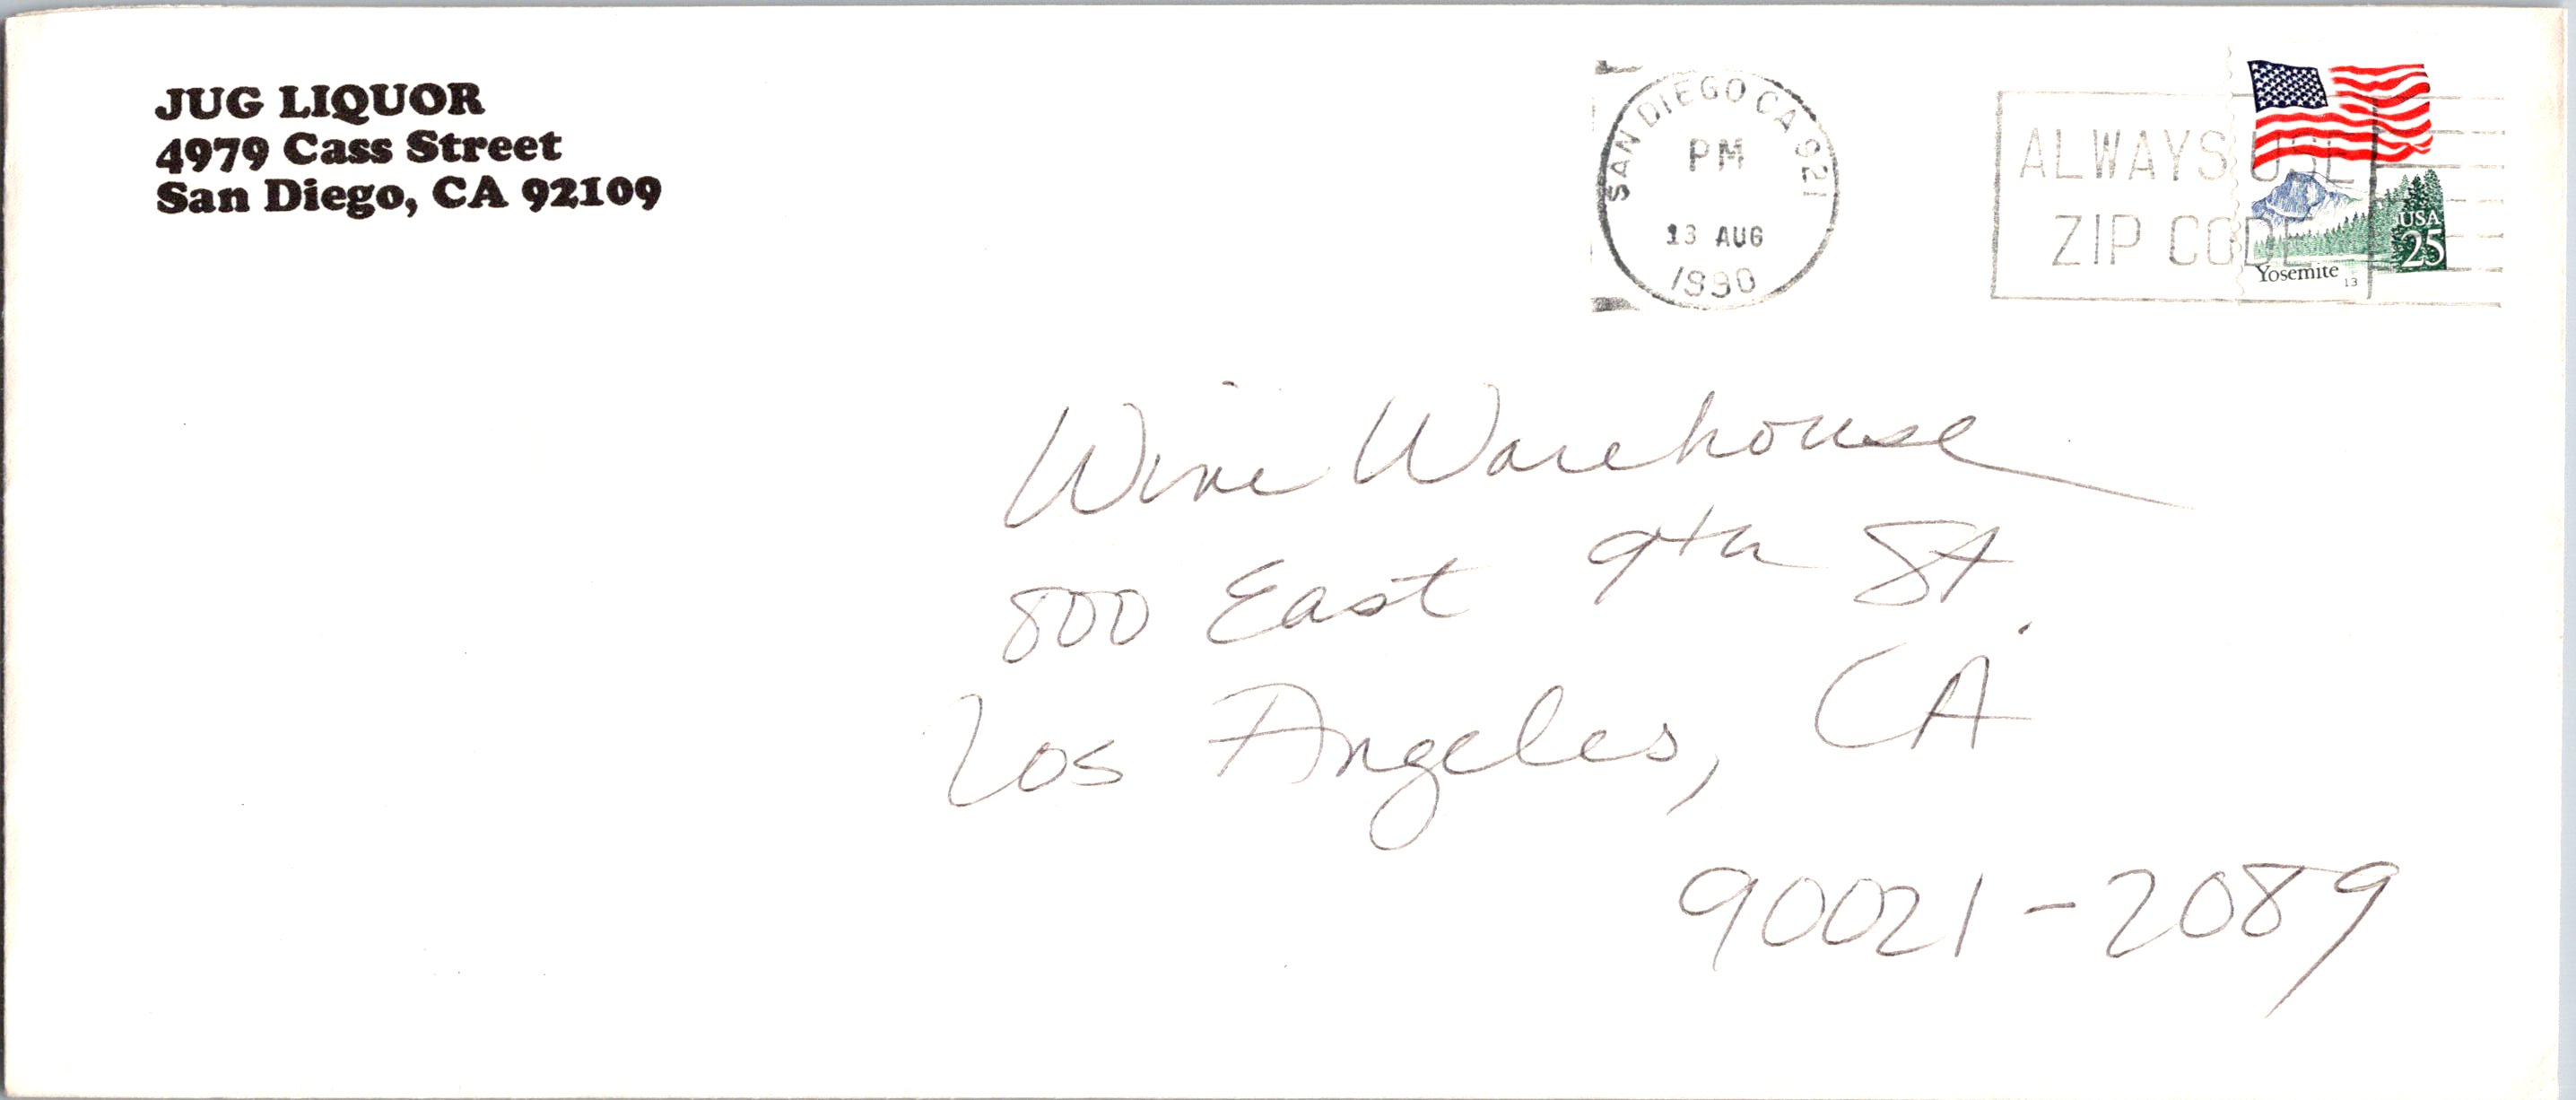 JUG LIQUOR
4979 Cass Street
San Diego, CA 92109
SAN DIEGO CA 921
PM
13 AUG
1990
ALWAYS USE
ZIP CODE
USA
25
Yosemite
13
Wine Warehouse
800 East 9th St.
Los Angeles, CA
90021-2089